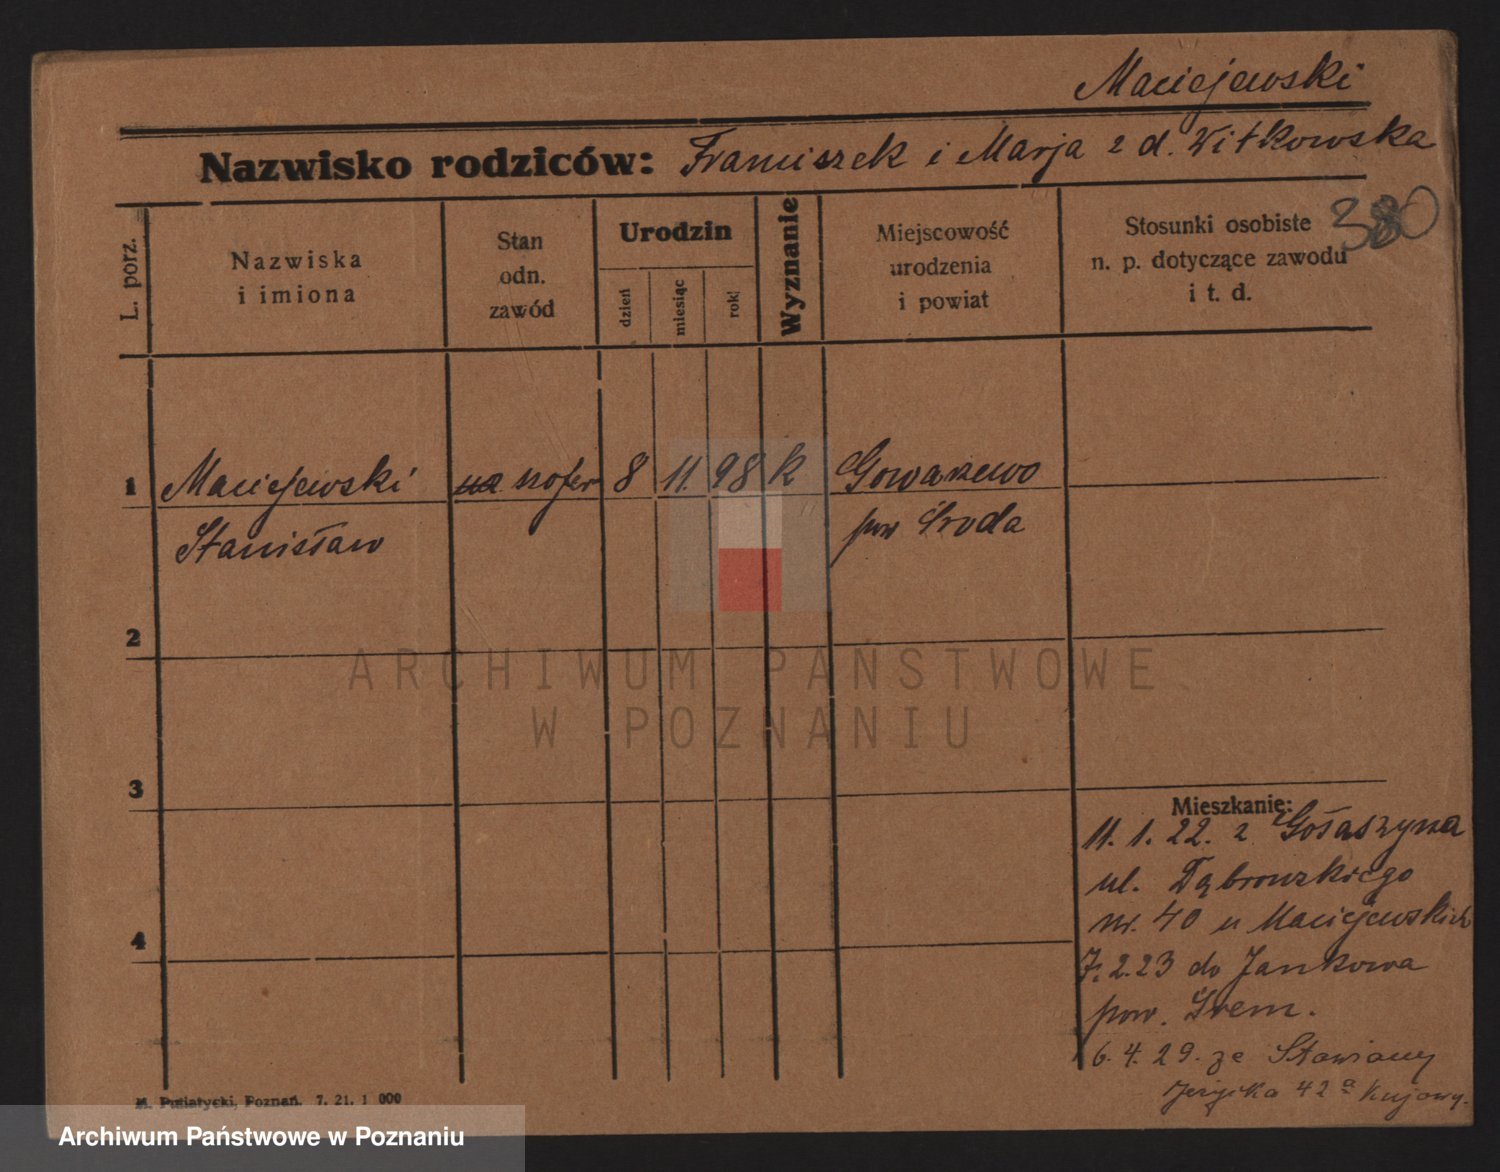 Maciejewski
Nazwisko rodziców: Franciszek i Marja z d. Witkowska
380
L. porz.
Nazwiska
i imiona
Stan
odn.
zawód
Urodzin
dzień
miesiąc
rok
Wyznanie
Miejscowość
urodzenia
i powiat
Stosunki osobiste
n. p. dotyczące zawodu
i t. d.
1 Maciejewski szofer 8 11. 98 k Gowarzewo
Stanisław pow Środa
2
3
4
Mieszkanie:
11. 1. 22. z Gołaszyna
ul. Dąbrowskiego
nr. 40 u Maciejewskich
7. 2. 23 do Jankowa
pow. Śrem.
6. 4. 29. ze Stawiany
42a
ARCHIWUM PAŃSTWOWE
W POZNANIU
M. Putiatycki, Poznań. 7. 21. 1 000
Archiwum Państwowe w Poznaniu